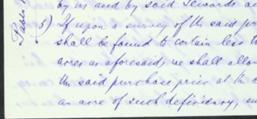 by us and by said Stewards a
(5) If upon a survey of the said pr
shall be found to contain less t
acres as aforesaid, we shall allow
the said purchase price at the
an acre of such deficiency, su